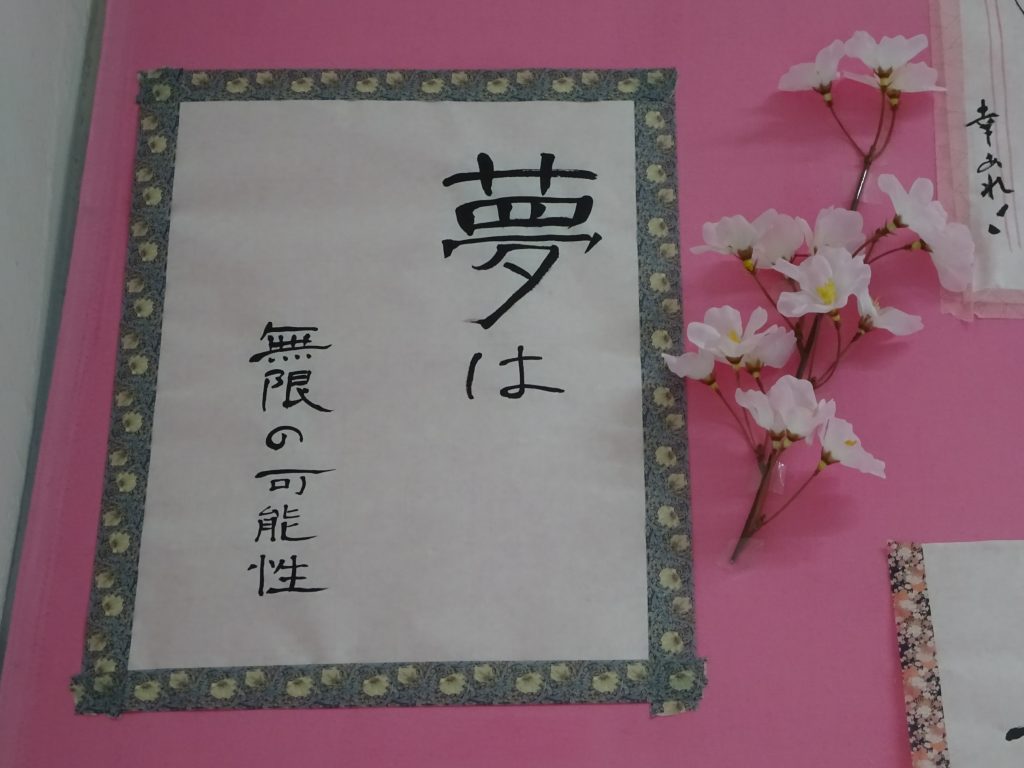 夢は
無限の可能性
幸あれ!